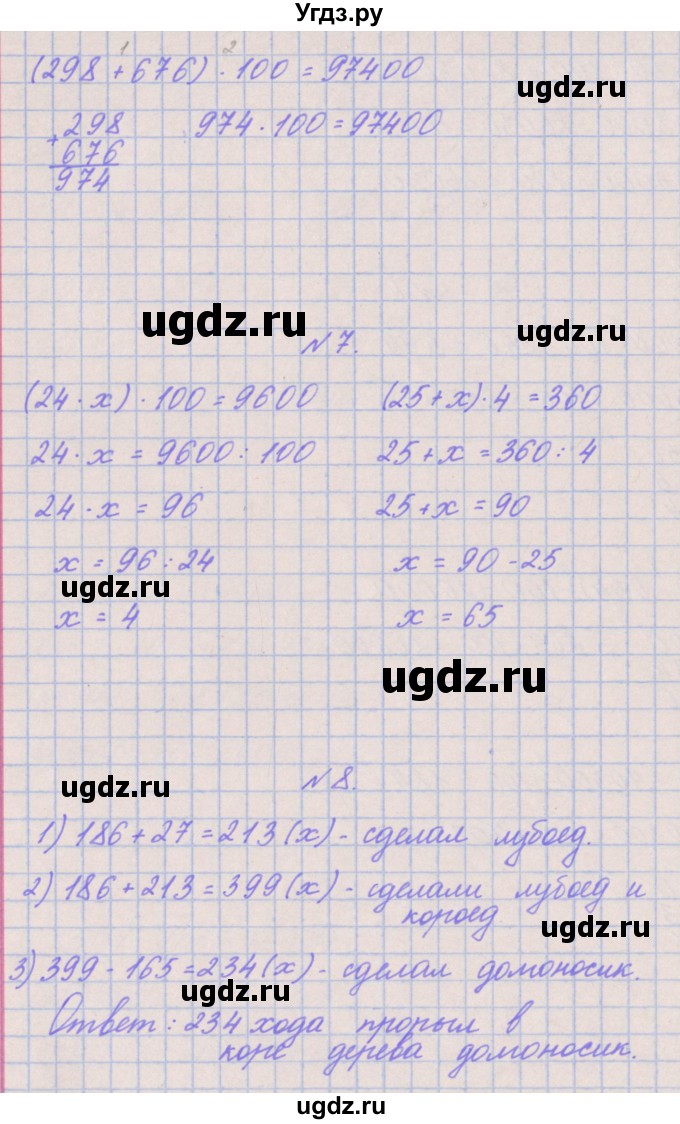 Угдз.ру
1 2
(298 + 676) · 100 = 97400
ugdz.ru
+ 298 974 · 100 = 97400
676
974
ugdz.ru
ugdz.ru
N 7.
(24 · x) · 100 = 9600 (25 + x) · 4 = 360
24 · x = 9600 : 100 25 + x = 360 : 4
24 · x = 96 25 + x = 90
x = 96 : 24 x = 90 - 25
ugdz.ru
x = 4 x = 65
ugdz.ru
N 8.
ugdz.ru
1) 186 + 27 = 213 (х) - сделал лубоед.
2) 186 + 213 = 399 (х) - сделали лубоед и
короед
ugdz.ru
3) 399 - 165 = 234 (х) - сделал домоносик.
ugdz.ru
Ответ : 234 хода прорыл в
коре дерева домоносик.
ugdz.ru